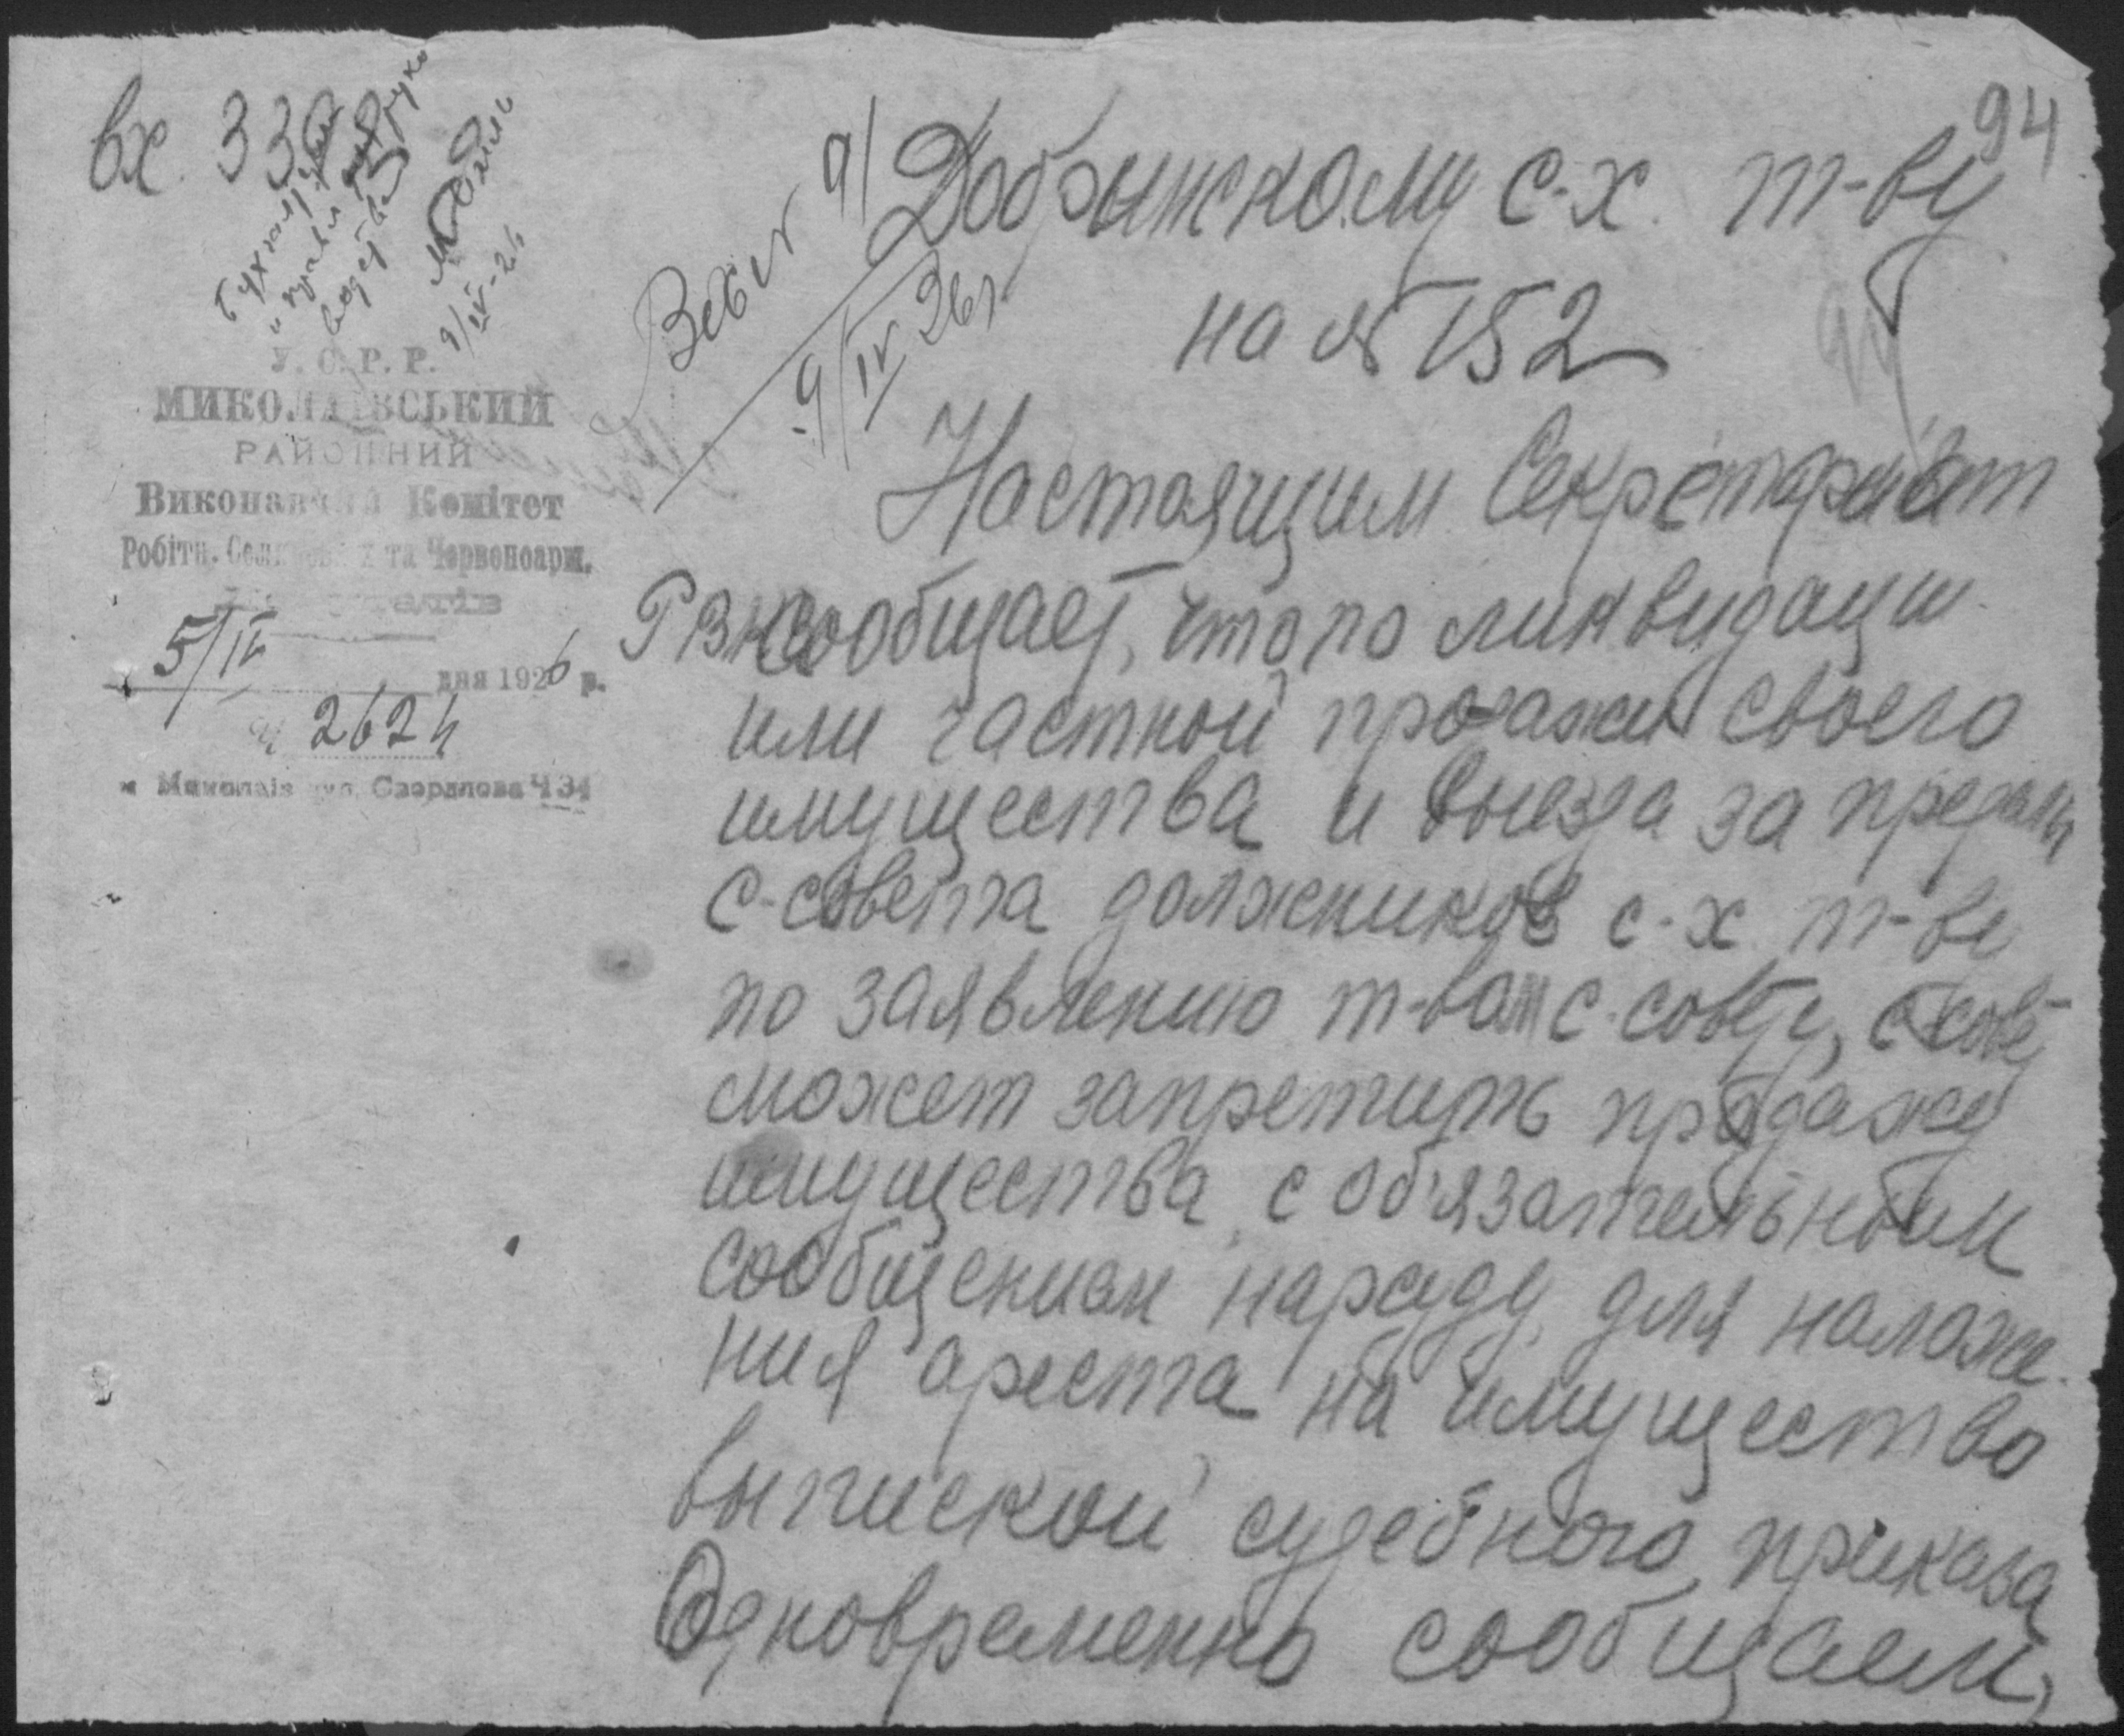 94
вх. 339
9/IV-26
9/IV 26г
У. С. Р. Р.
МИКОЛАЇВСЬКИЙ
РАЙОННИЙ
Виконавчий Комітет
Робітн. Селянських та Червоноарм.
5/IV дня 1926 р.
Ч 2624
м Миколаїв вул. Свердлова Ч 34
Добрынскому с-х. т-ву
на № 152
Настоящим Секретариат
РВК сообщает, что по ликвидации
или частной продажи своего
имущества и выезда за пределы
с-совета должников с-х т-ве
по заявлению т-вом с-совету, с-совет
может запретить продажу
имущества, с об'язательным
сообщением нарсуду, для наложе-
ния ареста на имущество
выпиской судебного приказа
Одновременно сообщаем,